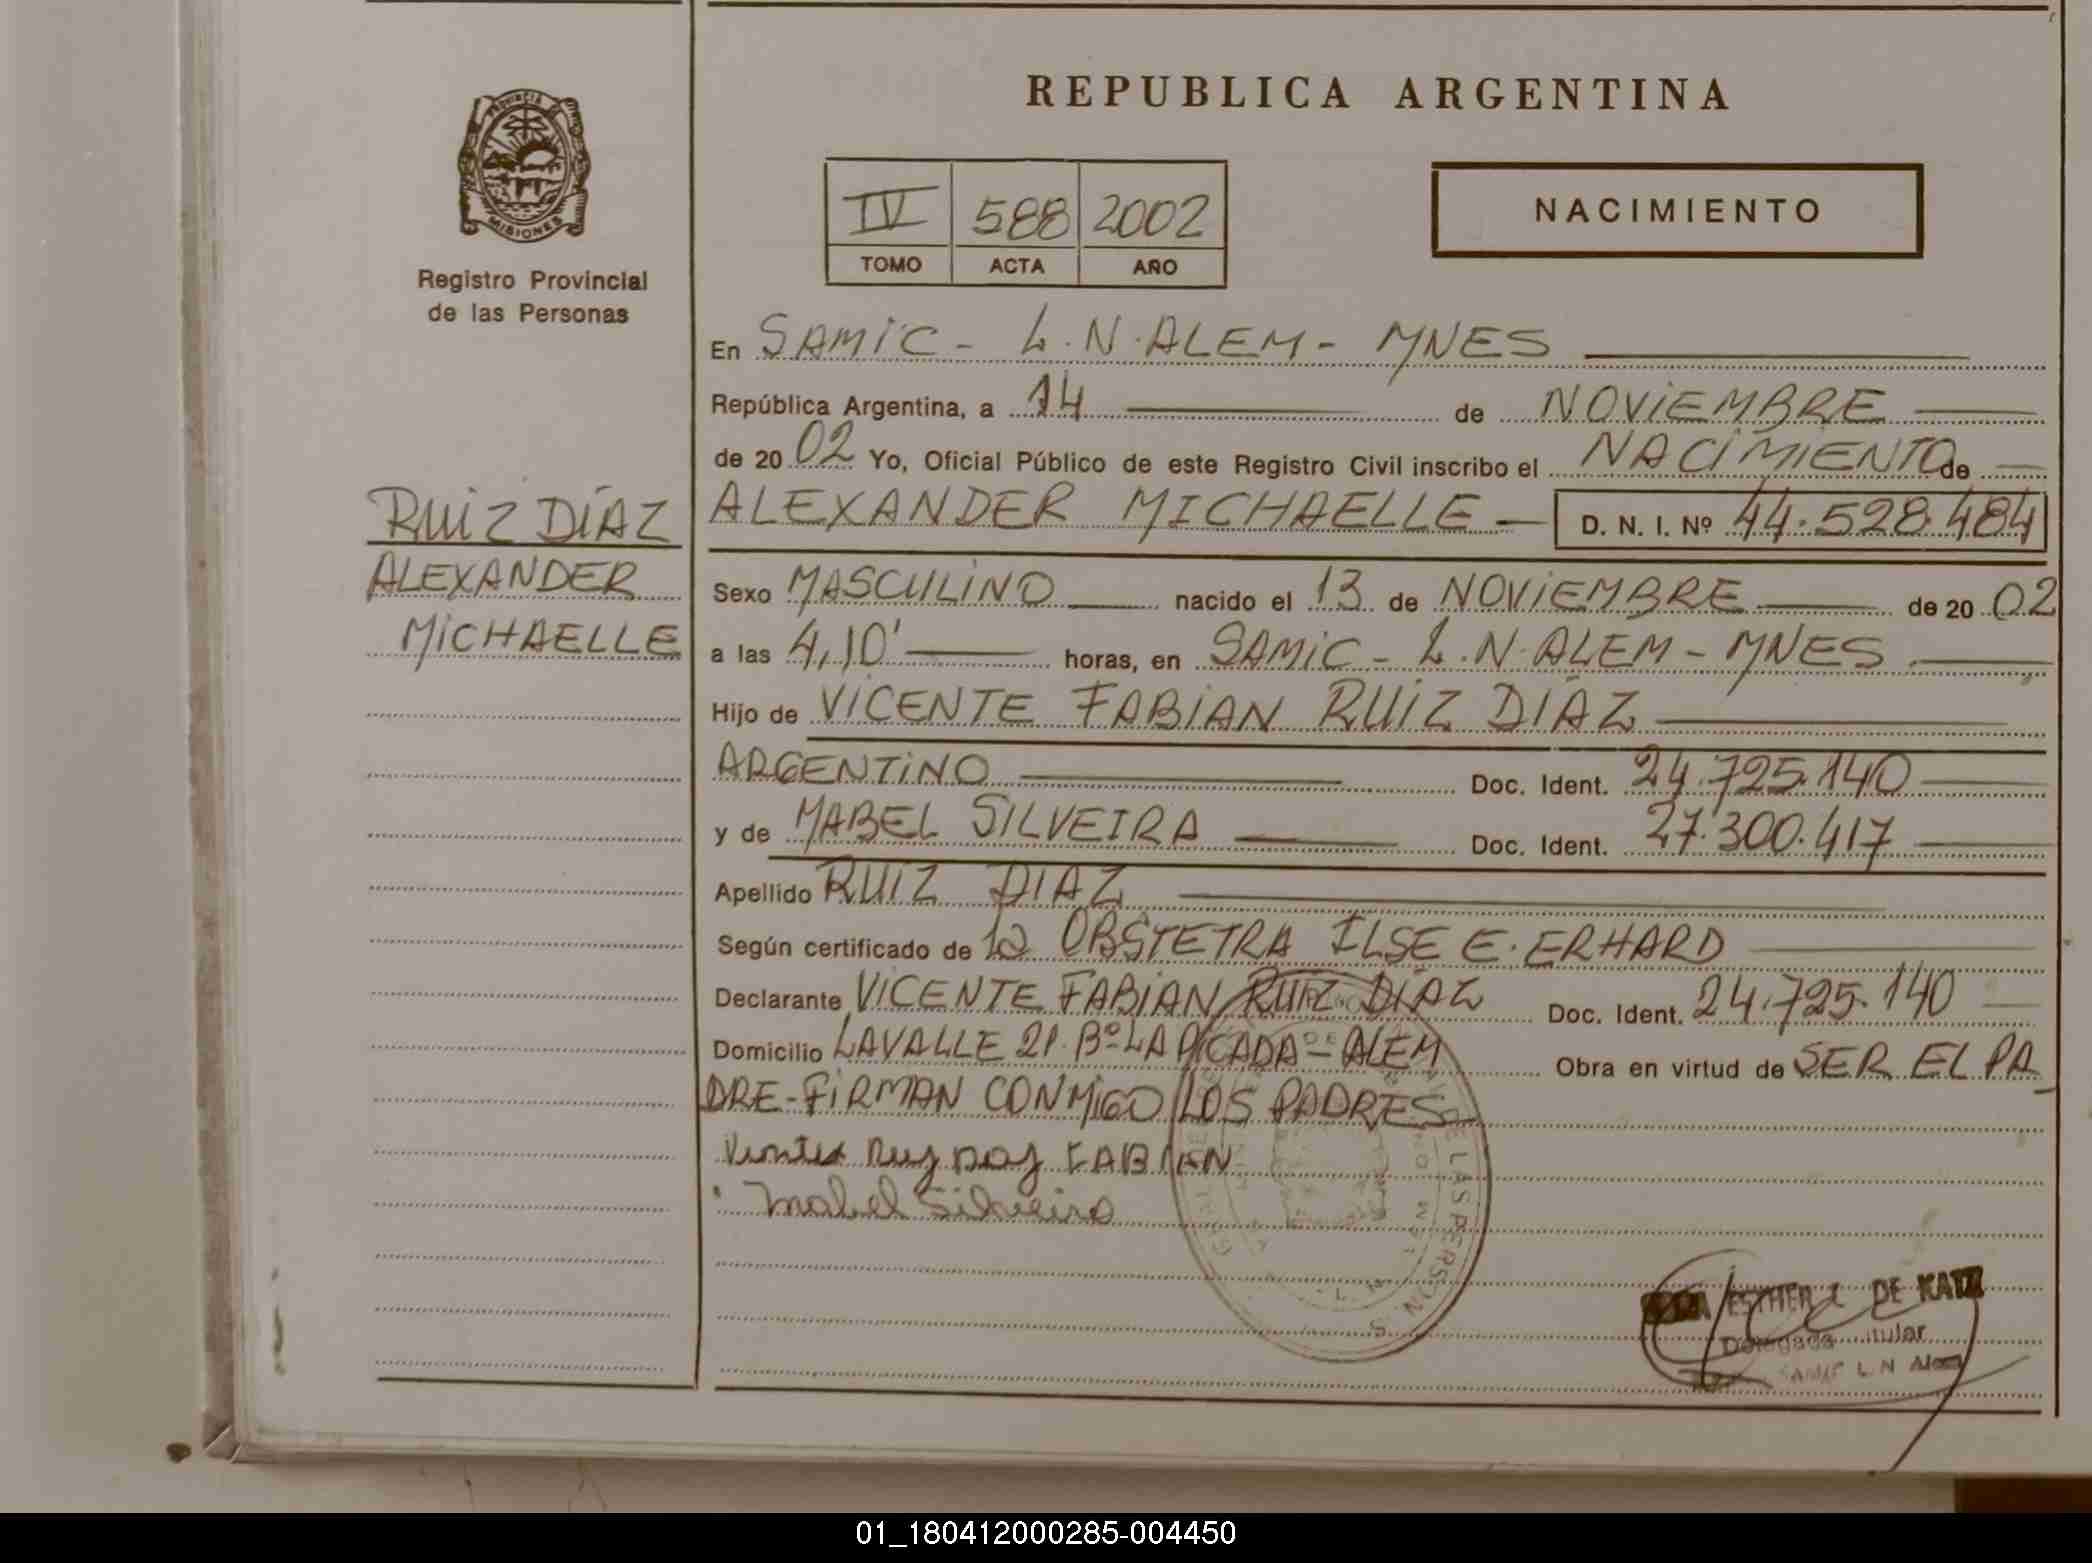 REPUBLICA ARGENTINA
PROVINCIA DE MISIONES
Registro Provincial
de las Personas
IV 588 2002
TOMO ACTA AÑO
NACIMIENTO
En SAMIC - L.N.ALEM - MNES
República Argentina, a 14 de NOVIEMBRE
de 20 02 Yo, Oficial Público de este Registro Civil inscribo el NACIMIENTO de
ALEXANDER MICHAELLE D. N. I. Nº 44.528.484
RUIZ DÍAZ
ALEXANDER
MICHAELLE
Sexo MASCULINO nacido el 13 de NOVIEMBRE de 20 02
a las 4,10' horas, en SAMIC - L.N.ALEM - MNES
Hijo de VICENTE FABIAN RUIZ DÍAZ
ARGENTINO Doc. Ident. 24.725.140
y de MABEL SILVEIRA Doc. Ident. 27.300.417
Apellido RUIZ DIAZ
Según certificado de la OBSTETRA ILSE E. ERHARD
Declarante VICENTE FABIAN RUIZ DÍAZ Doc. Ident. 24.725.140
Domicilio LAVALLE 21. Bº LA PICADA - ALEM Obra en virtud de SER EL PA
DRE - FIRMAN CONMIGO LOS PADRES
FABIAN
Mabel Silveira
ESTHER L DE KATZ
Delegada Titular
SAMIC L N Alem
01_180412000285-004450